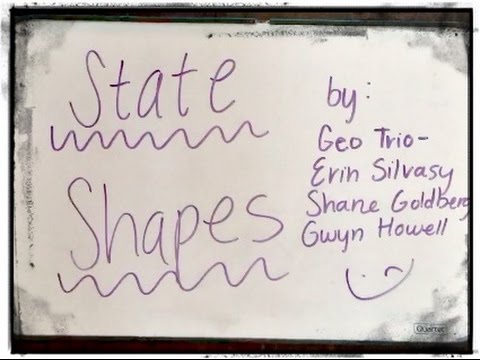 State
Shapes
by:
Geo Trio-
Erin Silvasy
Shane Goldberg
Gwyn Howell
Quartet